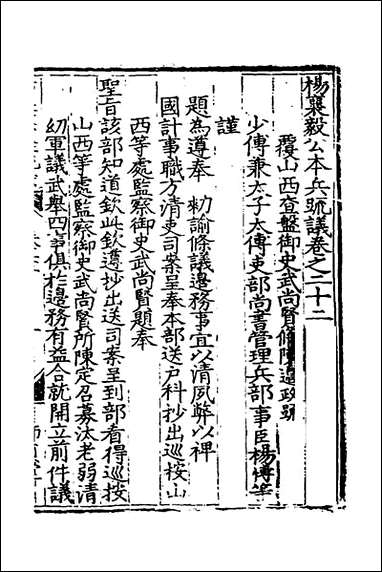 楊襄毅公本兵疏議卷之二十二
覆山西查盤御史武尚賢條陳邊政疏
少傅兼太子太傅吏部尚書管理兵部事臣楊博等
謹
題為遵奉 勑諭條議邊務事宜以清夙弊以裨
國計事職方清吏司案呈奉本部送户科抄出巡按山
西等處監察御史武尚賢題奉
聖旨該部知道欽此欽遵抄出送司案呈到部看得巡按
山西等處監察御史武尚賢所陳定召募汰老弱清
幼軍議武舉四事俱於邊務有益合就開立前件議